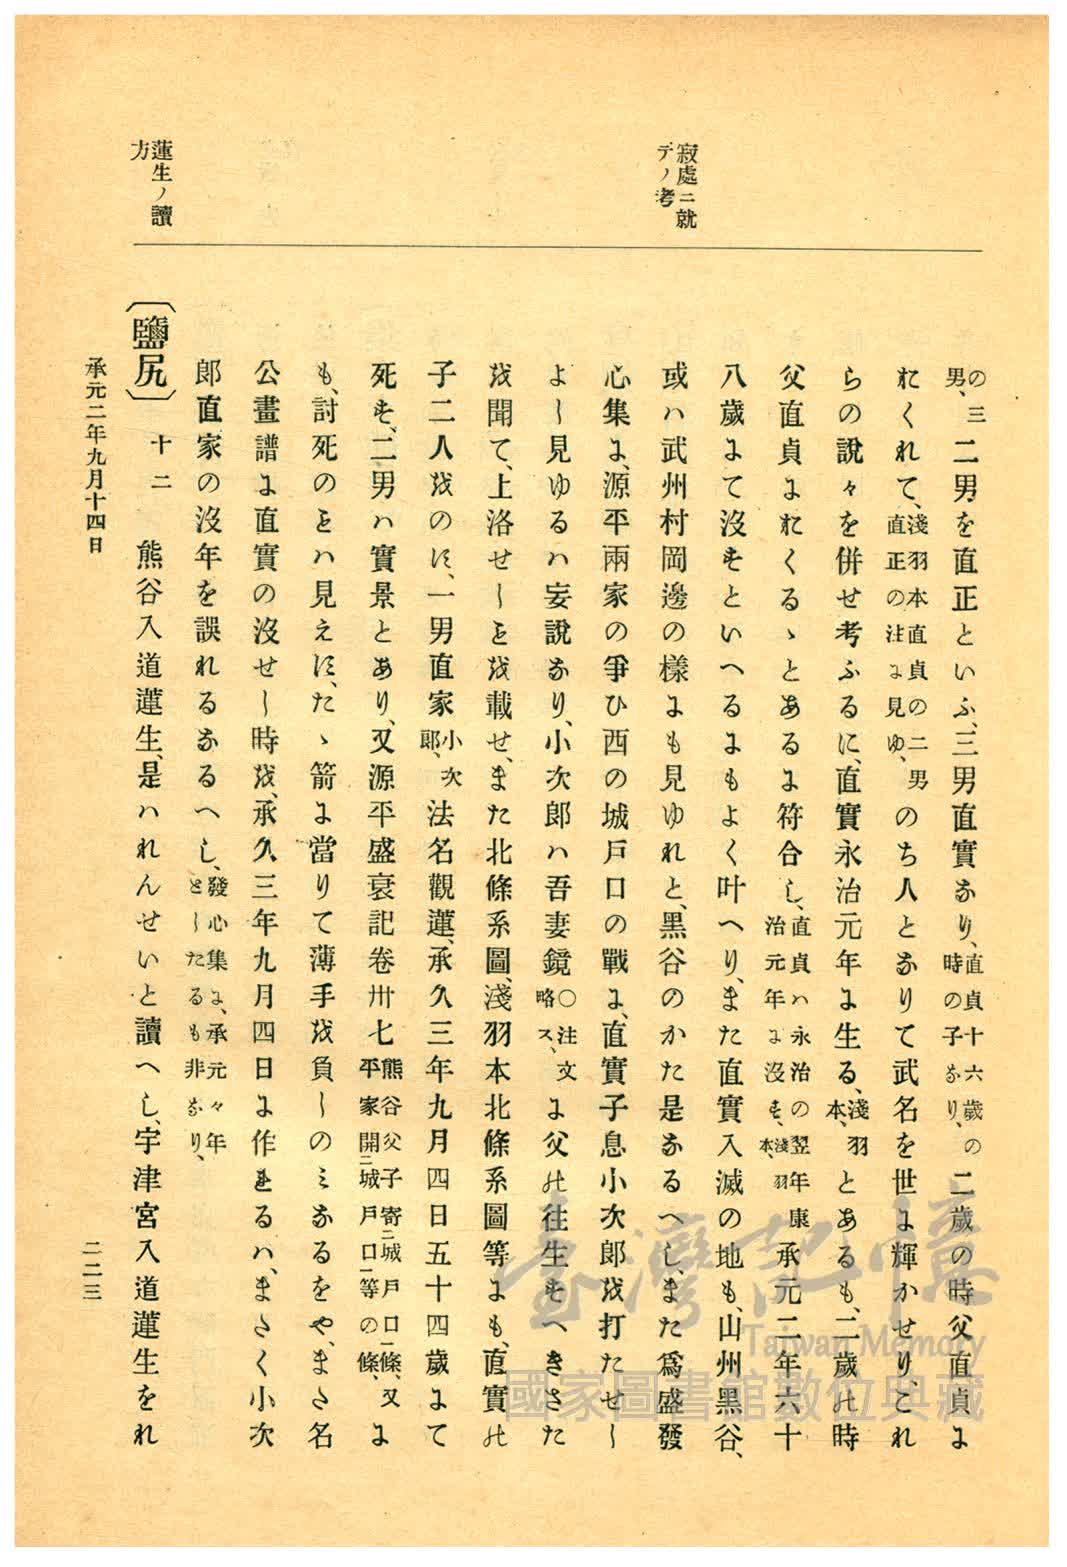 寂處ニ就
テノ考
蓮生ノ讀
方
の三男、二男を直正といふ、三男直實なり、直貞十六歲の時の子なり、二歲の時父直貞に
おくれて、淺羽本直貞の二男直正の注に見ゆ、のち人となりて武名を世に輝かせり、これ
らの說々を併せ考ふるに、直實永治元年に生る、淺羽本、とあるも、二歲の時
父直貞におくるゝとあるに符合し、直貞ハ永治の翌年康治元年に沒す、淺羽本、承元二年六十
八歲にて沒すといへるにもよく叶へり、また直實入滅の地も、山州黑谷、
或ハ武州村岡邊の樣にも見ゆれと、黑谷のかた是なるへし、また爲盛發
心集に、源平兩家の爭ひ西の城戶口の戰に、直實子息小次郎を打たせし
よし見ゆるハ妄說なり、小次郎ハ吾妻鏡〇注文略ス、に父の往生すへきさた
を聞て、上洛せしことを載せ、また北條系圖、淺羽本北條系圖等にも、直實の
子二人をのす、一男直家小次郎、法名觀蓮、承久三年九月四日五十四歲にて
死す、二男ハ實景とあり、又源平盛衰記卷卅七熊谷父子寄ニ城戶口一條、又平家開ニ城戶口一等の條、に
も、討死のことハ見えす、たゝ箭に當りて薄手を負しのミなるをや、まさ名
公畫譜に直實の沒せし時を、承久三年九月四日に作れるハ、まさく小次
郎直家の沒年を誤れるなるへし、發心集に、承元々年としたるも非なり、
〔鹽尻〕 十二 熊谷入道蓮生、是ハれんせいと讀へし、宇津宮入道蓮生をれ
承元二年九月十四日
二二三
臺灣記憶
Taiwan Memory
國家圖書館數位典藏